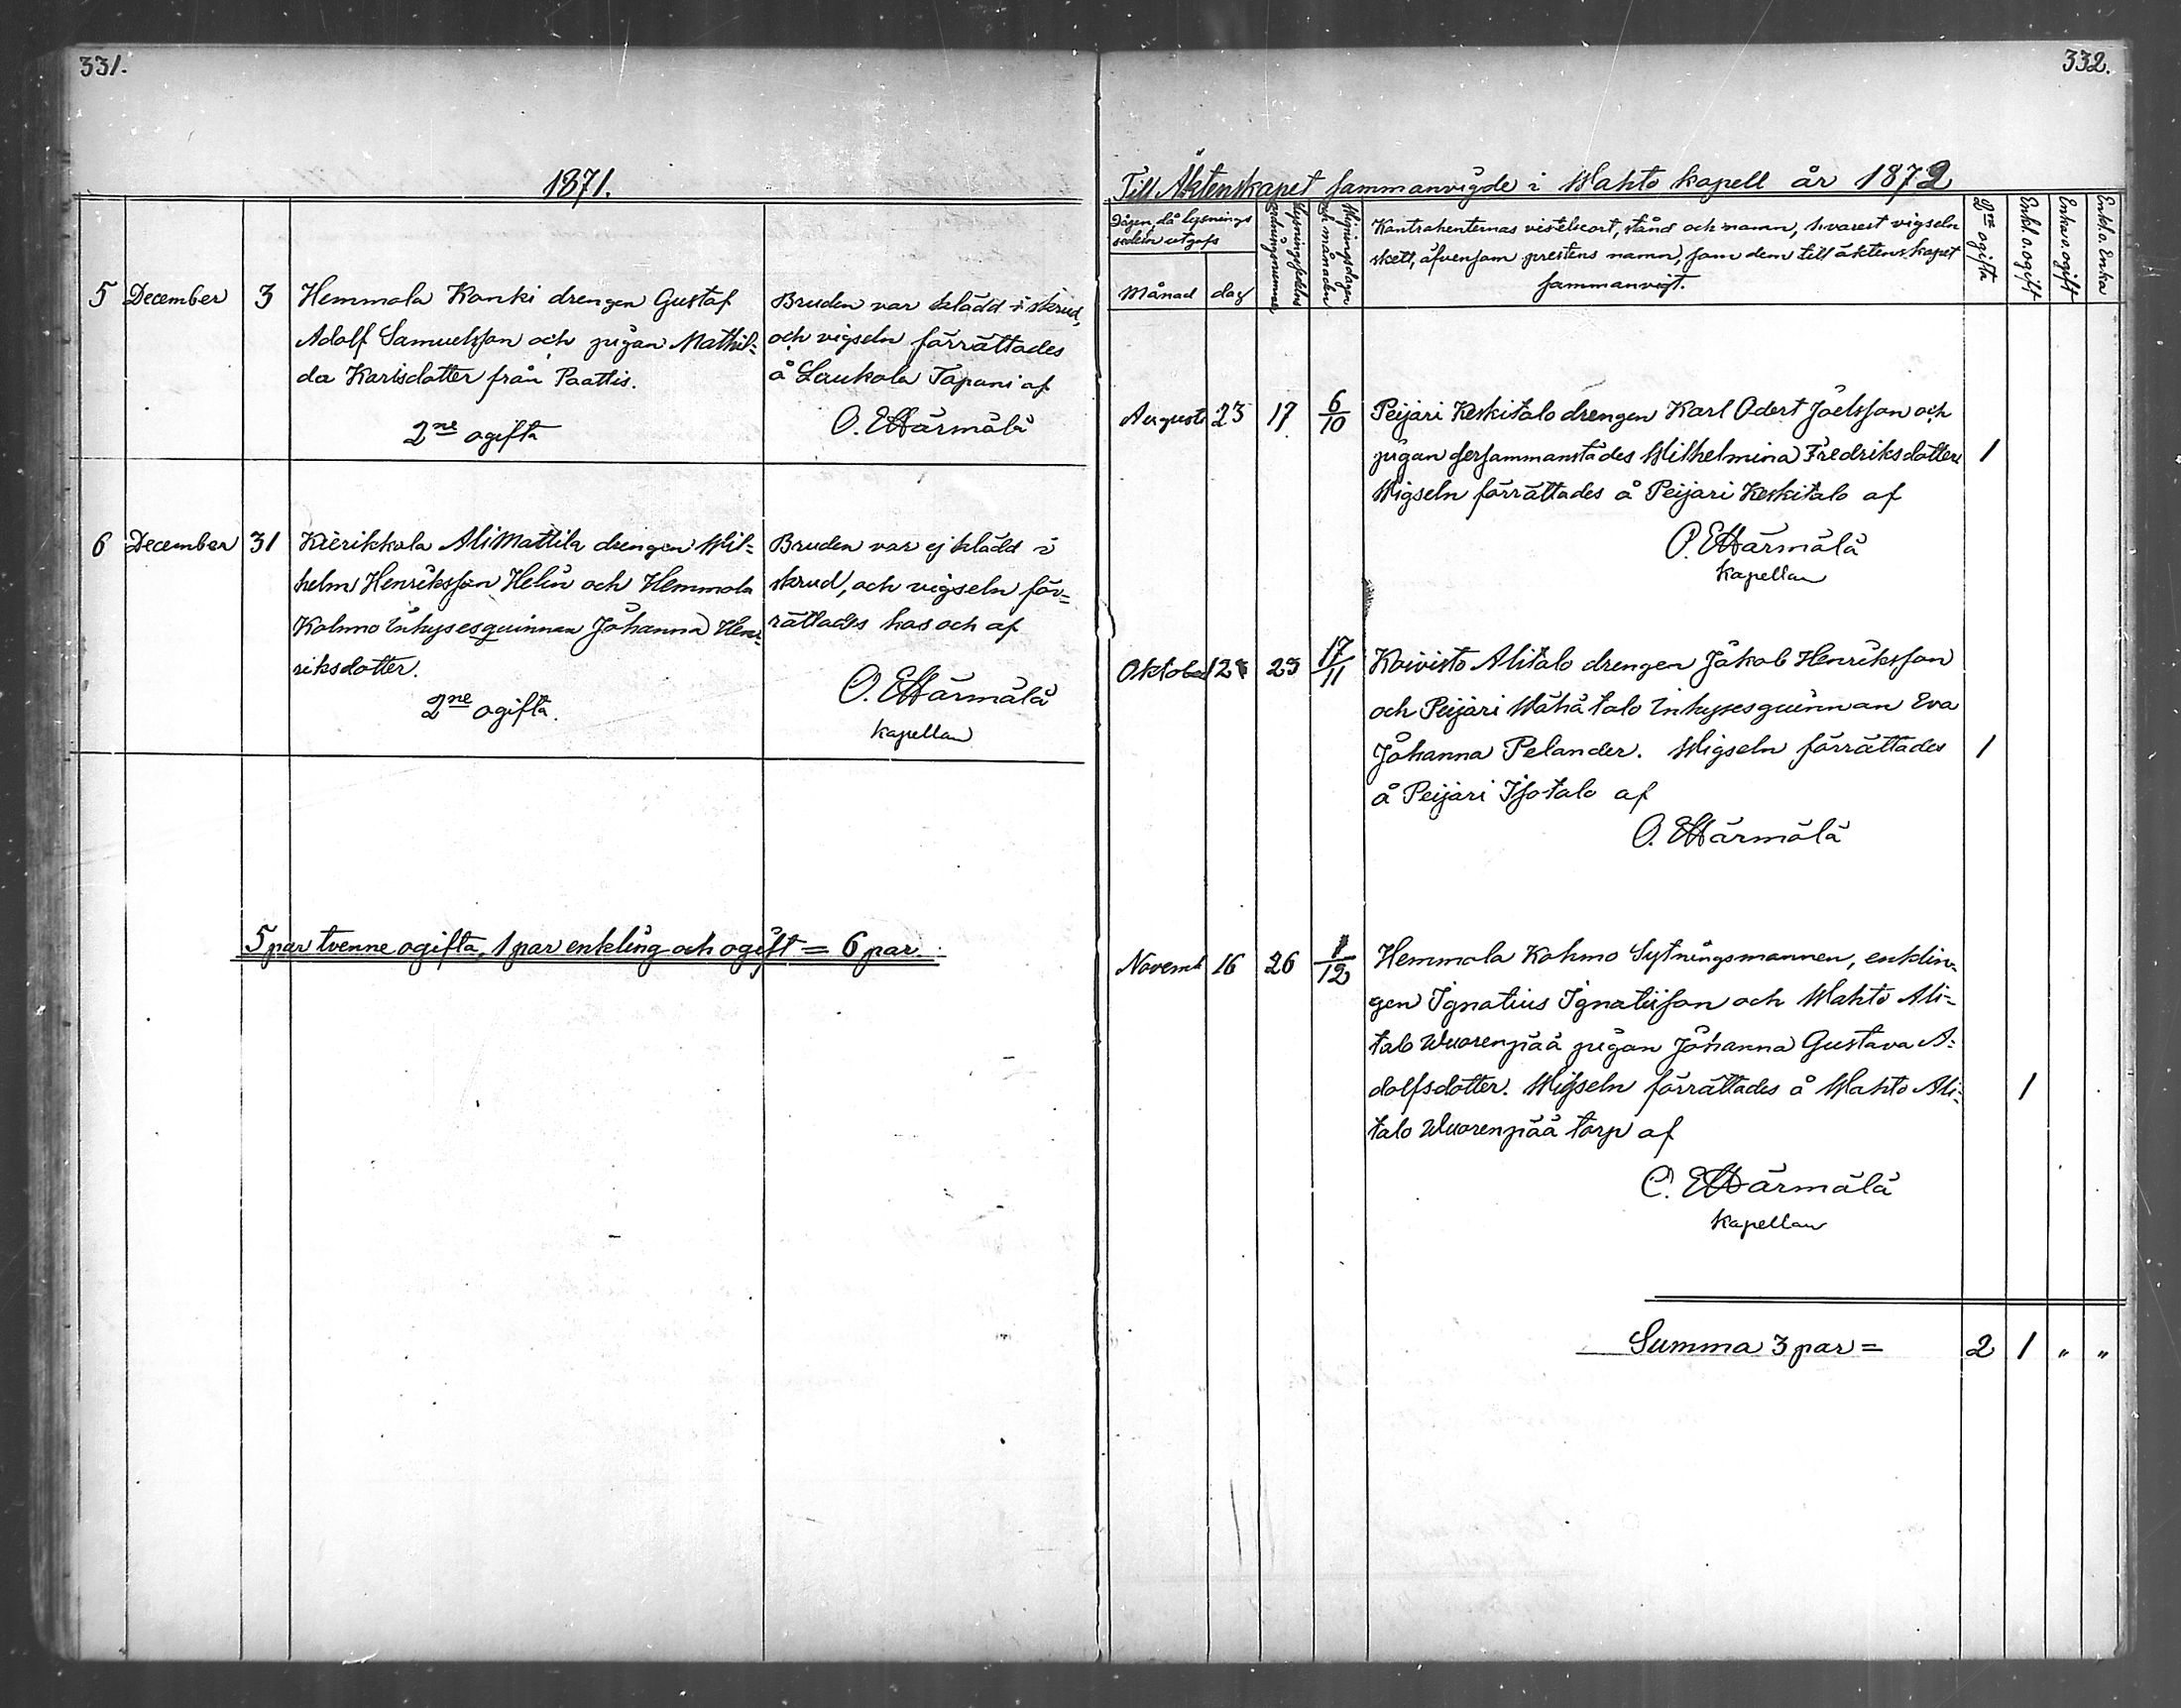 331.
1871.
5 December 3 Hemmola Konki drengen Gustaf
Adolf Samuelsson och pigan Mathil=
da Karlsdotter från Paattis.
2ne ogifta
Bruden var klädd i skrud,
och vigseln förrättades
å Laukola Tapani af
O. E Härmälä
6 December 31 Kierikkala Ali Mattila drengen Wil=
helm Henriksson Helin och Hemmola
Kohmo Inhysesquinnan Johanna Hen=
riksdotter.
2ne ogifta.
Bruden var ej klädd i
skrud, och vigseln för=
rättades hos och af
O. E Härmälä
kapellan
5 par tvenne ogifta, 1 par enkling och ogift = 6 par.
332.
Till Äktenskapet sammanvigde i Wahto kapell år 1872
Dagen, då lysnings
sedeln utgafs
Månad dag
Lysningssedelns
ordningsnummer
Wigningsdagen
och månaden
Kontrahenternas vistelseort, stånd och namn, hvarest vigseln
skett, äfvensom prestens namn, som dem till äktenskapet
sammanvigt.
2ne ogifta
Enkl. o. ogift
Enka o. ogift
Enkl. o. Enka
Augusti 23 17 6/10 Peijari Keskitalo drengen Karl Odert Joelsson och
pigan dersammanstädes Wilhelmina Fredriksdotter 1
Wigseln förrättades å Peijari Keskitalo af
O. E Härmälä
kapellan
Oktober 28 23 17/11 Koivisto Alitalo drengen Jakob Henriksson
och Peijari Wähätalo Inhysesquinnan Eva
Johanna Pelander. Wigseln förrättades 1
å Peijari Isotalo af
O. E Härmälä
Novemb 16 26 1/12 Hemmola Kohmo Sytningsmannen, enklin=
gen Ignatius Ignatiison och Wahto Ali=
talo Wuorenpää pigan Johanna Gustava A=
dolfsdotter. Wigseln förrättades å Wahto Ali= 1
talo Wuorenpää torp af
O. E Härmälä
kapellan
Summa 3 par = 2 1 " "